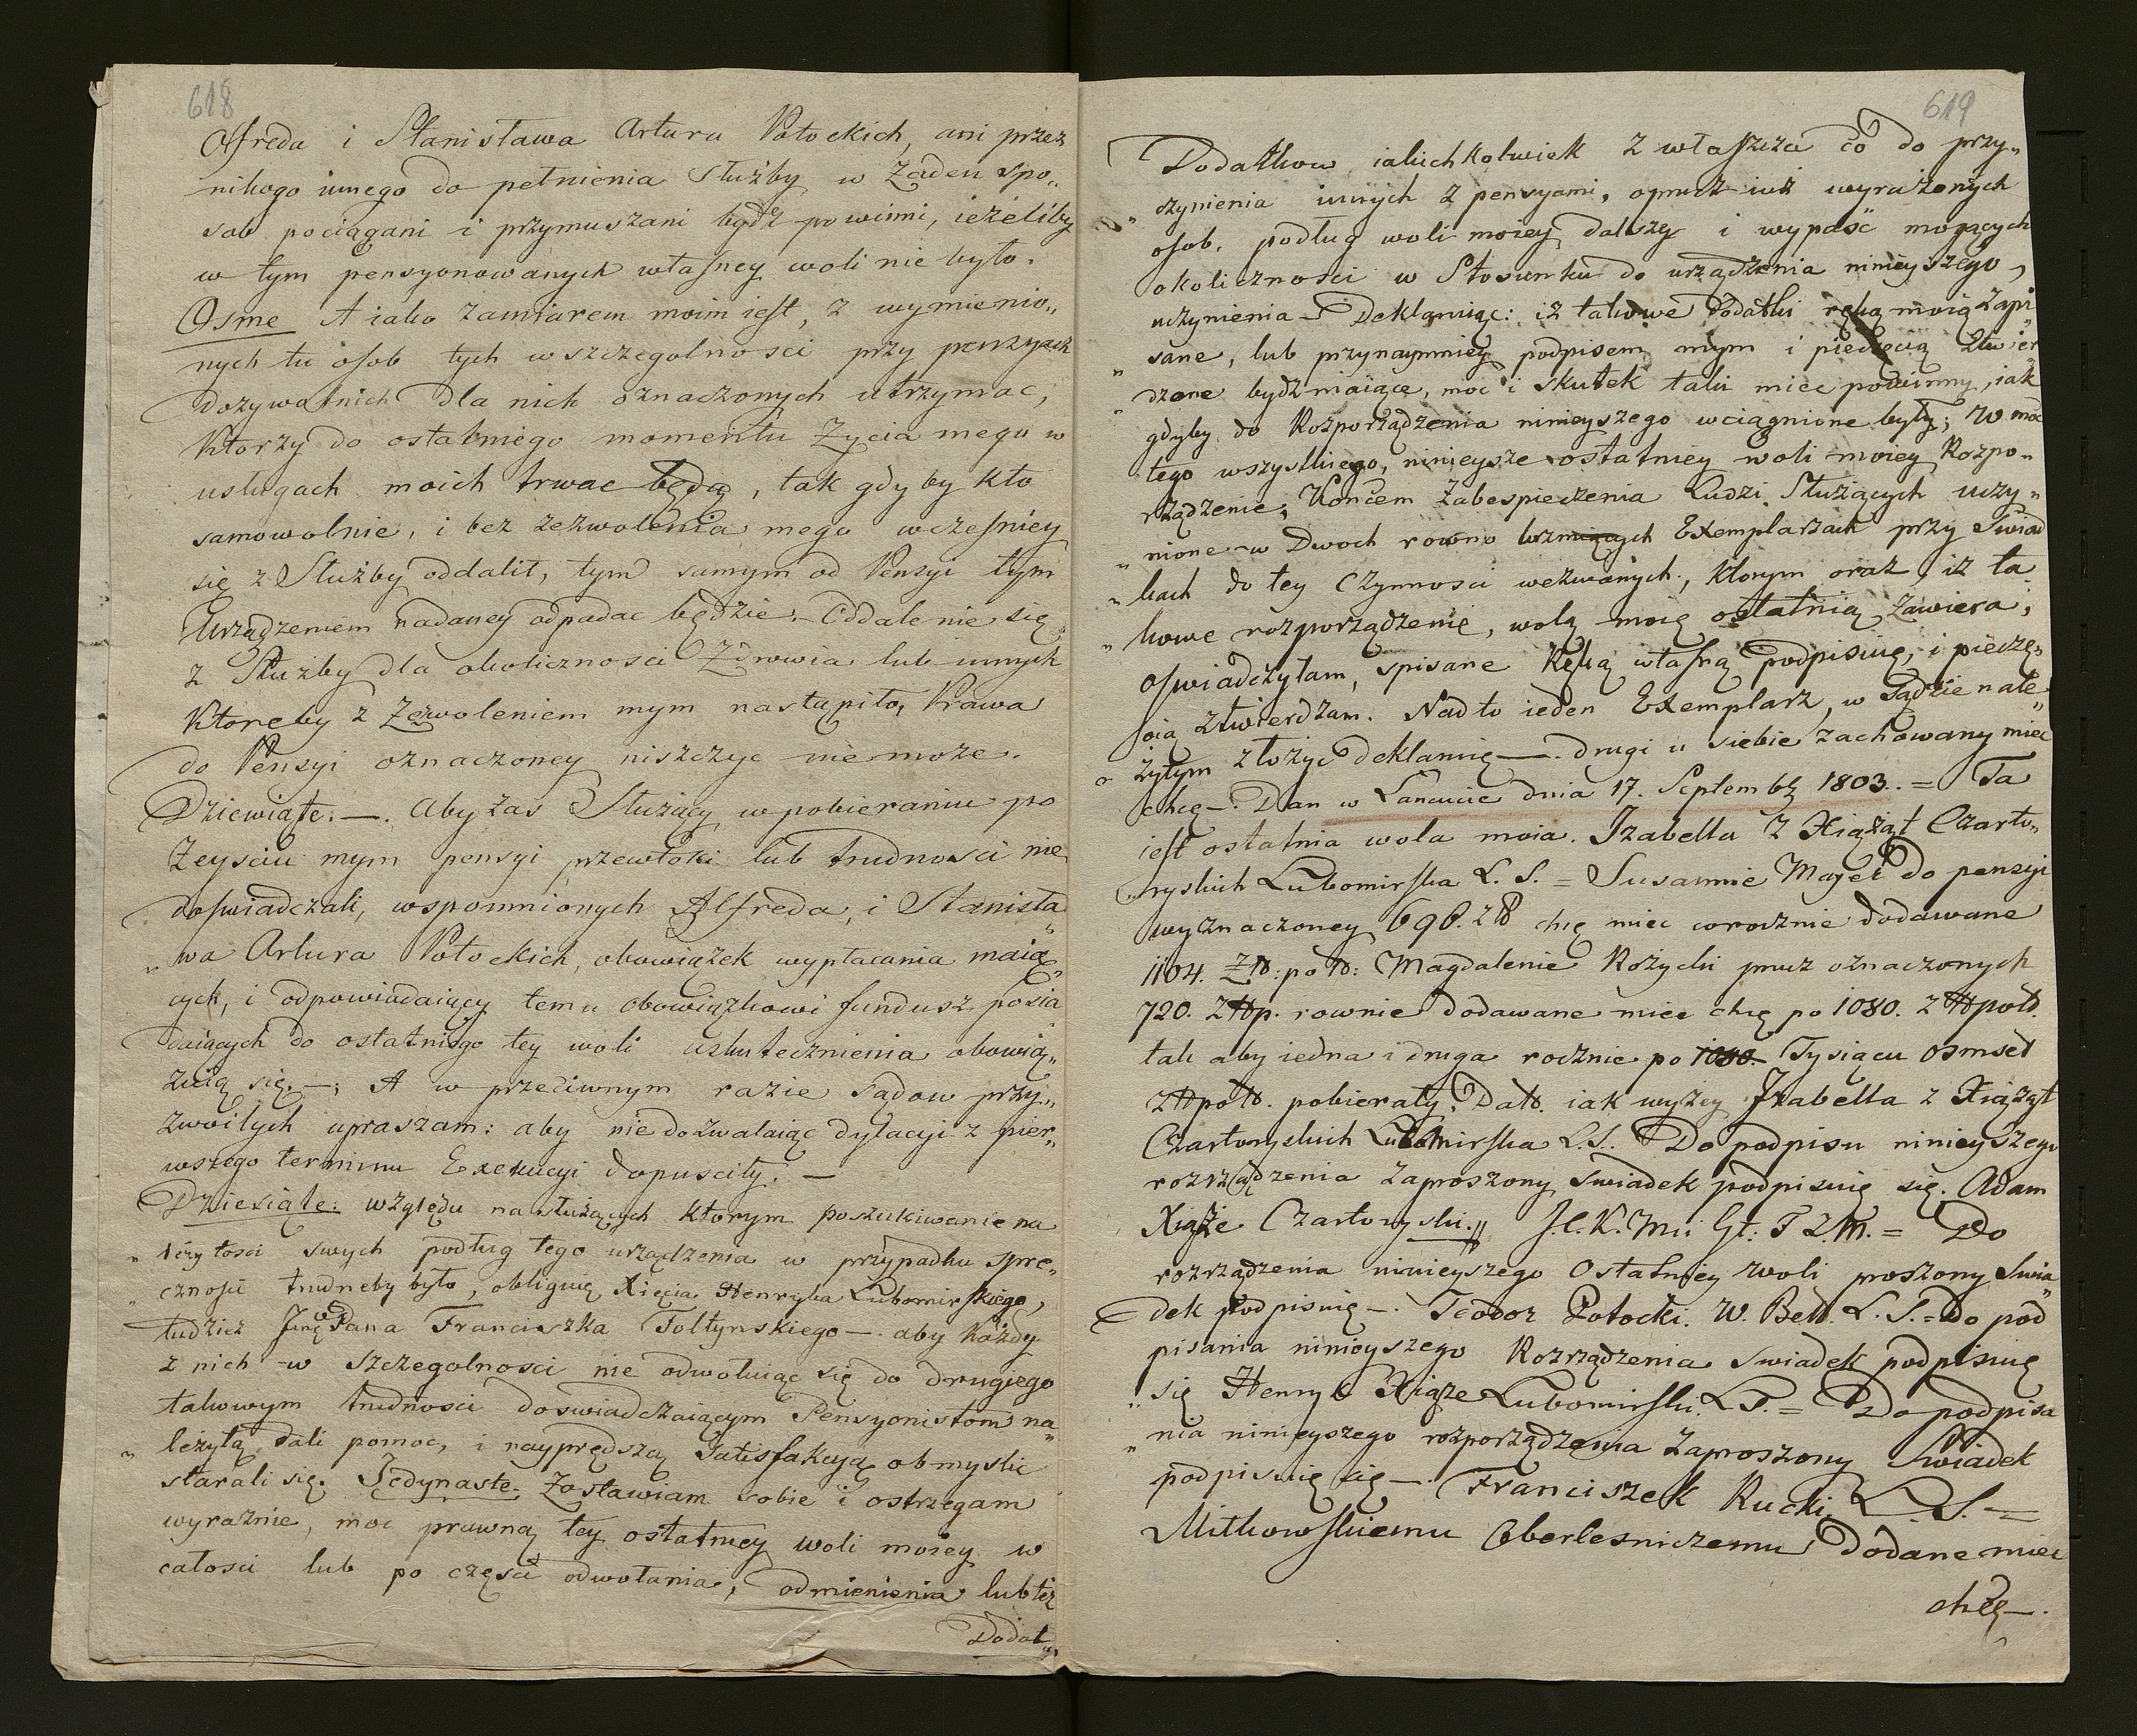 618
Alfreda i Stanisława Artura Potockich, ani przez
nikogo innego do pełnienia Służby w Żaden spo„
sob pociągani i przymuszani bydź powinni, ieżeliby
w tym pensyonowanych własney woli nie było.
Osme A iako zamiarem moim iest, z wymienio„
nych tu osob tych w szczegolnosci przy penzyach
dożywotnich dla nich oznaczonych utrzymac,
Ktorzy do ostatniego momentu Życia mego w
usługach moich trwac będą, tak gdy by kto
samowolnie, i bez zezwolenia mego wczesniey
się z Służby oddalił, tym samym od Penzyi tym
Urządzeniem nadaney odpadac będzie. Oddalenie się
z Służby dla okolicznosci Zdrowia lub innych
Ktoreby z Zezwoleniem mym nastąpiło, Prawa
do Penzyi oznaczoney niszczyc nie może.
Dziewiąte. —. Aby zas Służący w pobieraniu po
Zeysciu mym pensyi przewłoki lub trudnosci nie
doswiadczali, wspomnionych Alfreda, i Stanisła
„wa Artura Potockich, obowiązek wypłacania maią„
cych, i odpowiadaiący temu obowiązkowi fundusz posia
daiących do ostatniego tey woli uskutecznienia obowią„
zuię się. —; A w przeciwnym razie Sądow przy„
zwoitych upraszam: aby nie dozwalaiąc dylacyi z pier„
wszego terminu Exekucyi dopusciły. —
Dziesiąte: względu na służących ktorym poszukiwanie na
„leżytosci swych podług tego urządzenia w przypadku sprze„
„cznosci trudneby było, obliguię Xięcia Henryka Lubomirskiego,
tudzież Jmć Pana Franciszka Foltynskiego —. aby Każdy
z nich w szczegolnosci nie odwołuiąc się do drugiego
takowym trudnosci doswiadczaiącym Pensyonistom na„
„leżytą dali pomoc, i nayprędszą Satisfakcyą obmyslic
starali się. Jedynaste. Zostawiam sobie i ostrzegam
wyraznie, moc prawną tey ostatniey woli moiey w
całosci lub po części odwołania, odmienienia lub też
Dodat„
619
Dodatkow iakichkolwiek z właszcza co do przy„
„czynienia innych z pensyami, oprucz iuż wyrażonych
osob, podług woli moiey dalszey i wypaść mogących
okoliczności w Stosunku do urządzenia ninieyszego,
uczynienia — Deklaruiąc: iż takowe Dodatki ręką moią zapi
„sane, lub przynaymniey podpisem mym i pieczęcią stwier
„dzone bydz maiące, moc i skutek taki miec powinny, iak
gdyby do Rozporządzenia ninieyszego wciągnione były; W moc
tego wszystkiego, ninieysze ostatniey woli moiey Rozpo„
rządzenie, Końcem Zabespieczenia Ludzi Służących uczy„
„nione w Dwoch rowno brzmiących Exemplarzach przy Swiad
„kach do tey Czynnosci wezwanych, ktorym oraz, iż ta
„kowe rozporządzenie, wolą moię ostatnią zawiera;
oswiadczyłam, spisane Ręką własną podpisuię, i pieczę„
cią ztwierdzam. Nadto ieden Exemplarz, w Sądzie nale„
„żytym złożyc deklaruię —. drugi u siebie zachowany miec
chcę —. Dan w Łancucie dnia 17. Septembr 1803. = Ta
iest ostatnia wola moia. Izabella z Xiążąt Czarto„
„ryskich Lubomirska L. S. = Susannie Majer do penzyi
wyznaczoney 696. zł chcę miec corocznie dodawane
1104. Zł: pol: Magdalenie Rożycki prucz oznaczonych
720. złp. rownie dodawane miec chcę po 1080. zł pol.
tak aby iedna i druga rocznie po 1800. Tysiącu osmset
zł pol. pobierały. Datt. iak wyżey Izabella z Xiążąt
Czartoryskich Lubomirska L.S. Do podpisu ninieyszego
rozrządzenia zaproszony swiadek podpisuię się. Adam
Xiąże Czartoryski. J.C.K. Mci Gł: F Z.M. = Do
rozrządzenia ninieyszego Ostatniey woli proszony Swia„
dek podpisuię —. Teodor Potocki. W. Beł. L. S. = Do pod
pisania ninieyszego Rozrządzenia Swiadek podpisuię
„się Henryk Xiąże Lubomirski. L S. = Do podpisa
„nia ninieyszego rozporządzenia zaproszony Swiadek
podpisuię się —. Franciszek Rucki. L. S. =
Mitkowskiemu Oberlesniczemu Dodane miec
chcę —.